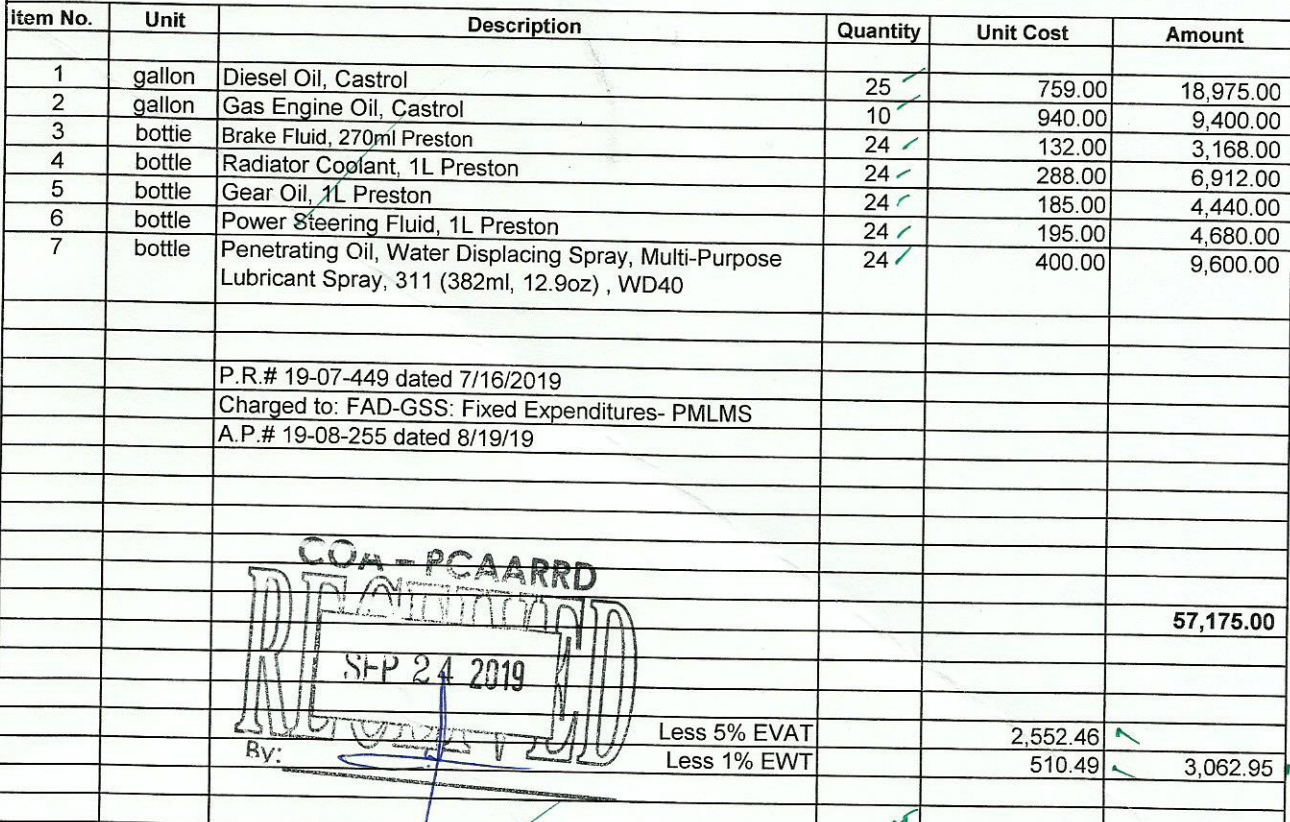 Item No. Unit Description Quantity Unit Cost Amount
1 gallon Diesel Oil, Castrol 25 759.00 18,975.00
2 gallon Gas Engine Oil, Castrol 10 940.00 9,400.00
3 bottle Brake Fluid, 270ml Preston 24 132.00 3,168.00
4 bottle Radiator Coolant, 1L Preston 24 288.00 6,912.00
5 bottle Gear Oil, 1L Preston 24 185.00 4,440.00
6 bottle Power Steering Fluid, 1L Preston 24 195.00 4,680.00
7 bottle Penetrating Oil, Water Displacing Spray, Multi-Purpose 24 400.00 9,600.00
Lubricant Spray, 311 (382ml, 12.9oz) , WD40
P.R.# 19-07-449 dated 7/16/2019
Charged to: FAD-GSS: Fixed Expenditures- PMLMS
A.P.# 19-08-255 dated 8/19/19
COA - PCAARRD
RECEIVED
57,175.00
SEP 24 2019
Less 5% EVAT 2,552.46
By: Less 1% EWT 510.49 3,062.95